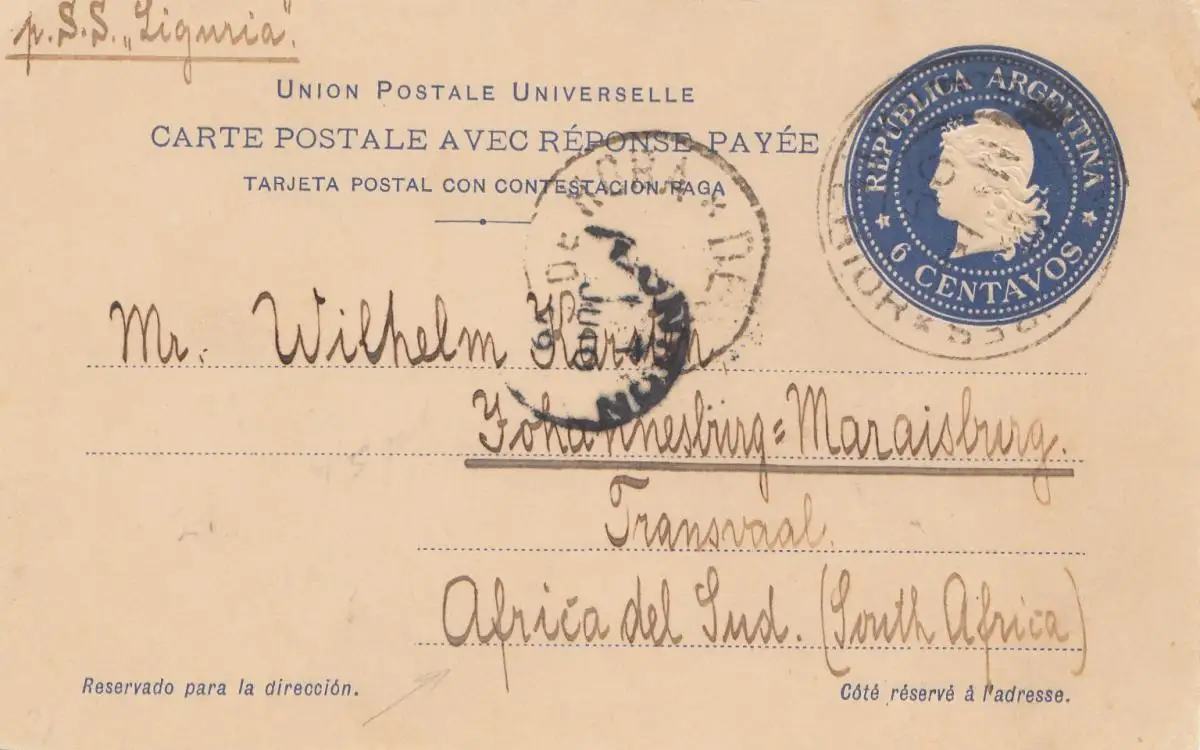 p. S.S. „Liguria".
UNION POSTALE UNIVERSELLE
CARTE POSTALE AVEC RÉPONSE PAYÉE
TARJETA POSTAL CON CONTESTACIÓN PAGA
REPÚBLICA ARGENTINA
6 CENTAVOS
LONDON
Mr. Wilhelm Karsten
Johannesburg=Maraisburg.
Transvaal.
Africa del Sud. (South Africa)
Reservado para la dirección.
Côté réservé à l'adresse.